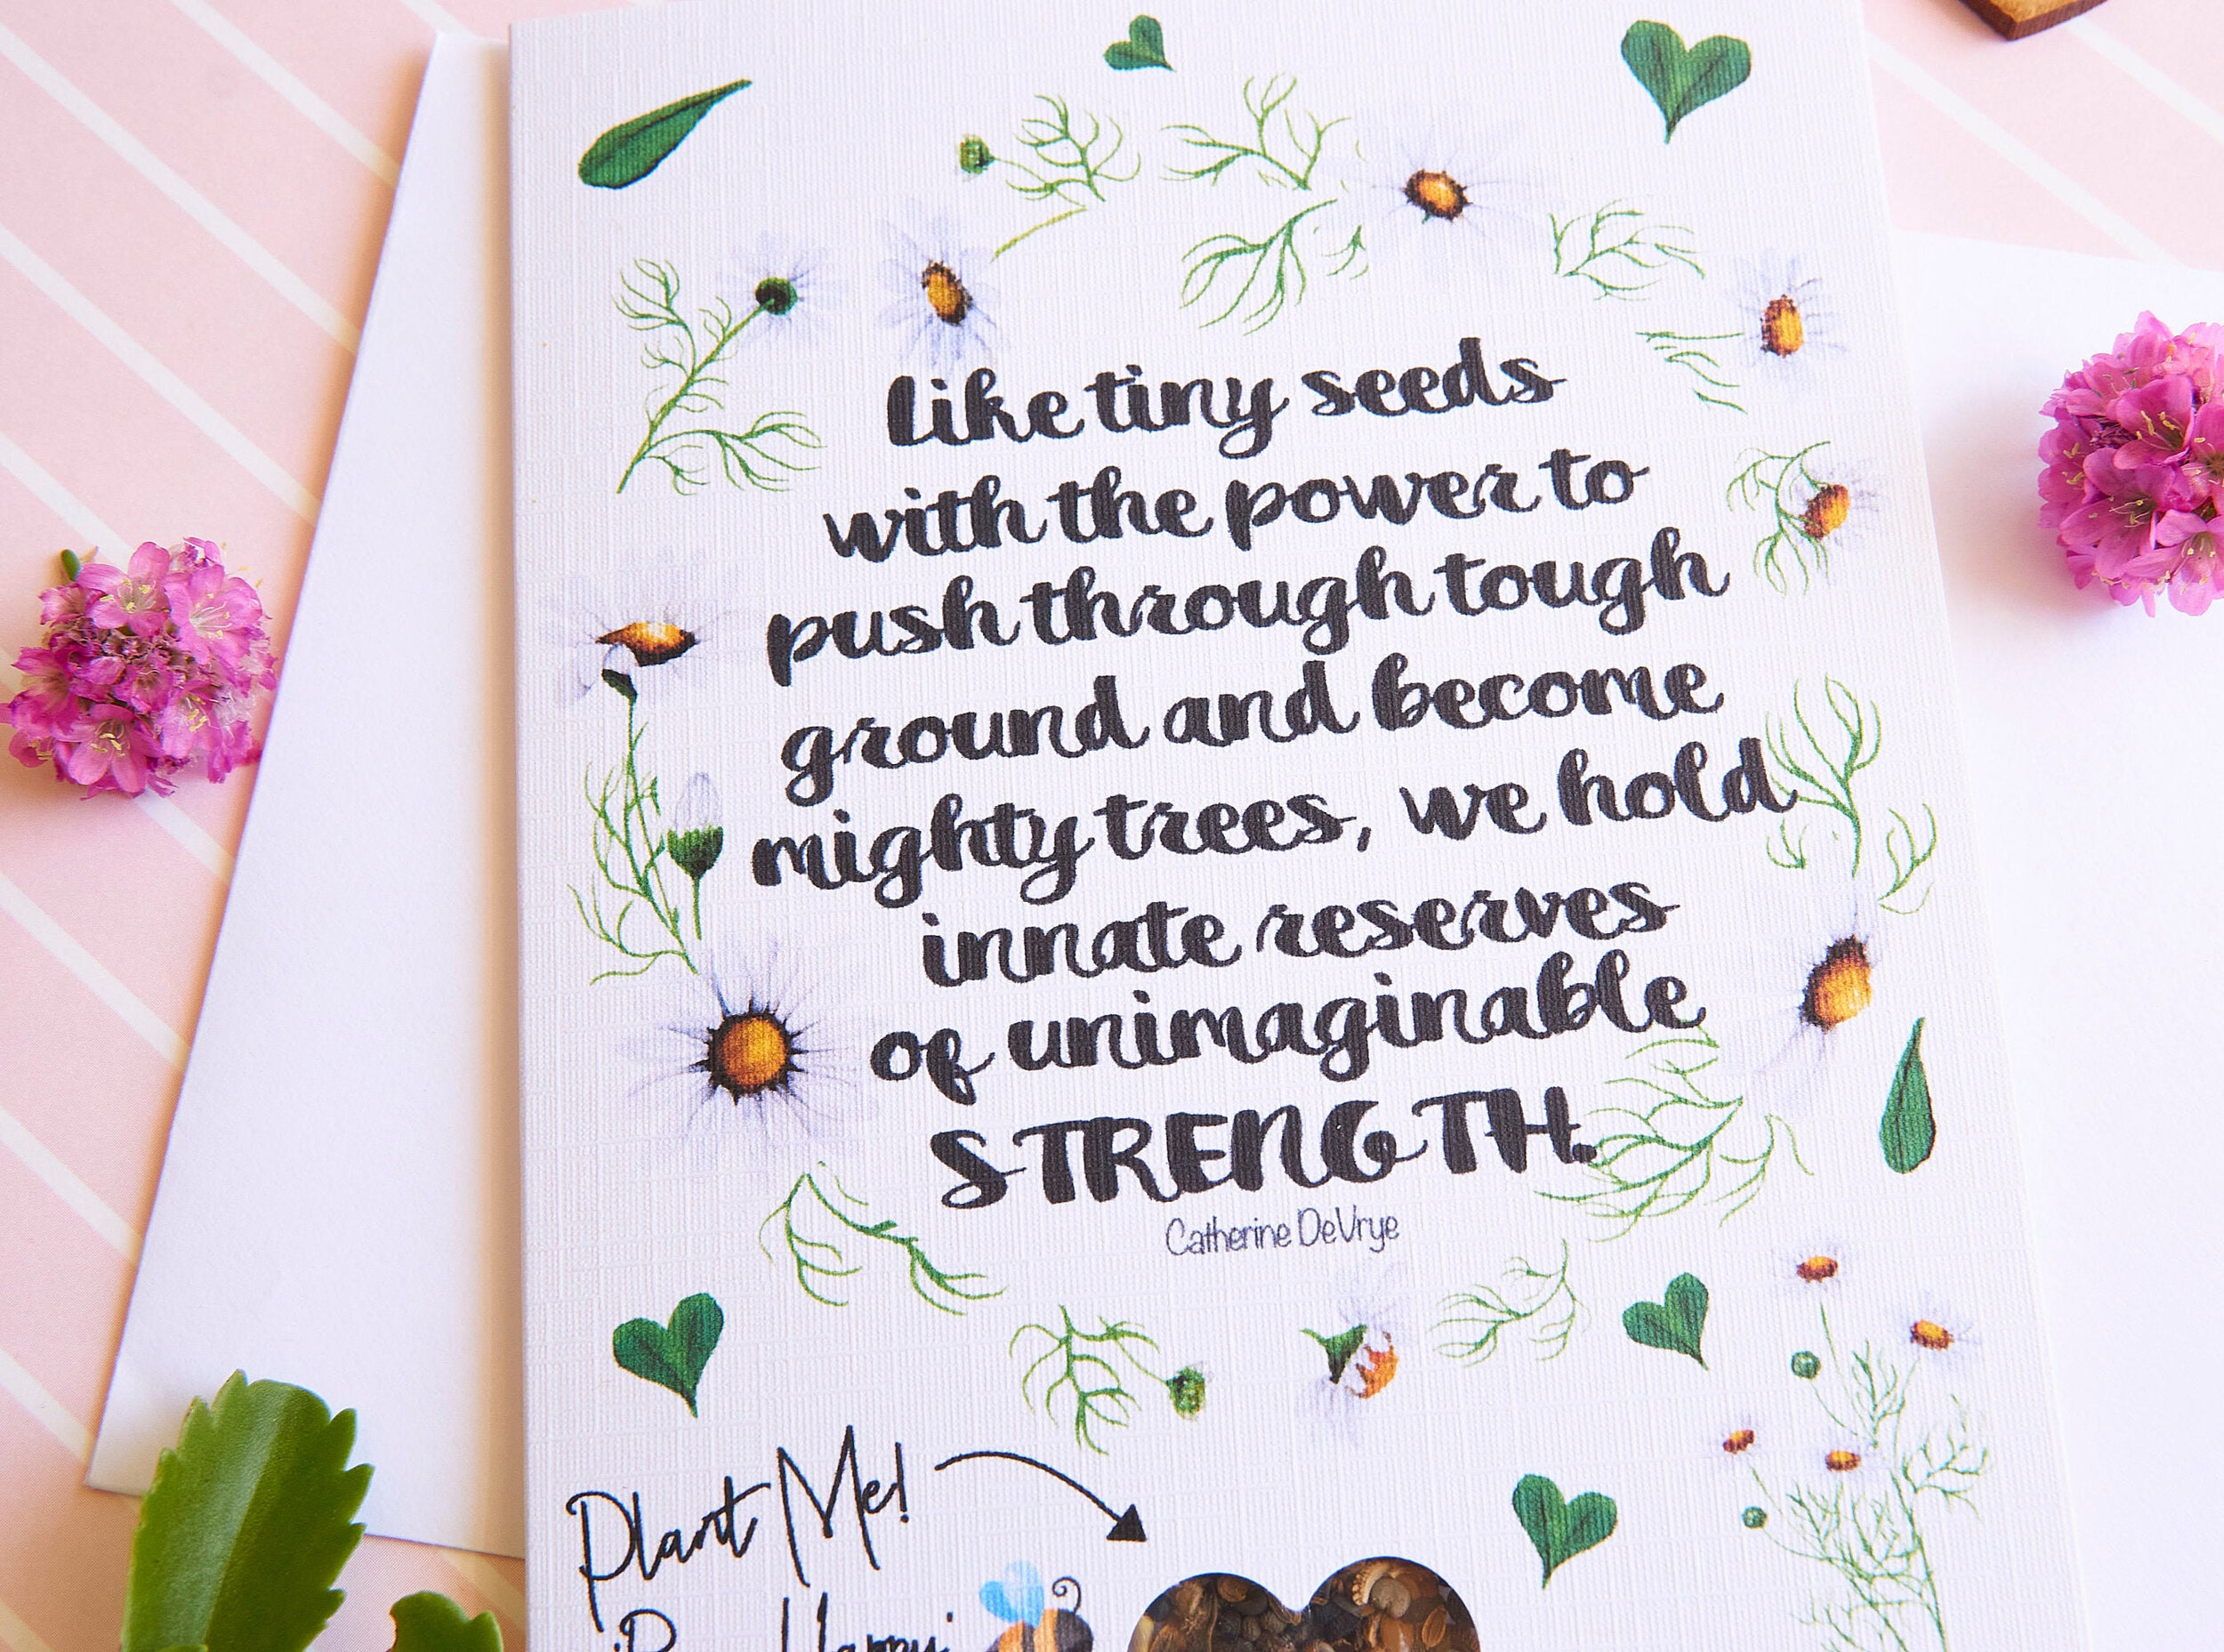 Like tiny seeds
with the power to
push through tough
ground and become
mighty trees, we hold
innate reserves
of unimaginable
STRENGTH.
Catherine DeVrye
Plant Me!
Happy